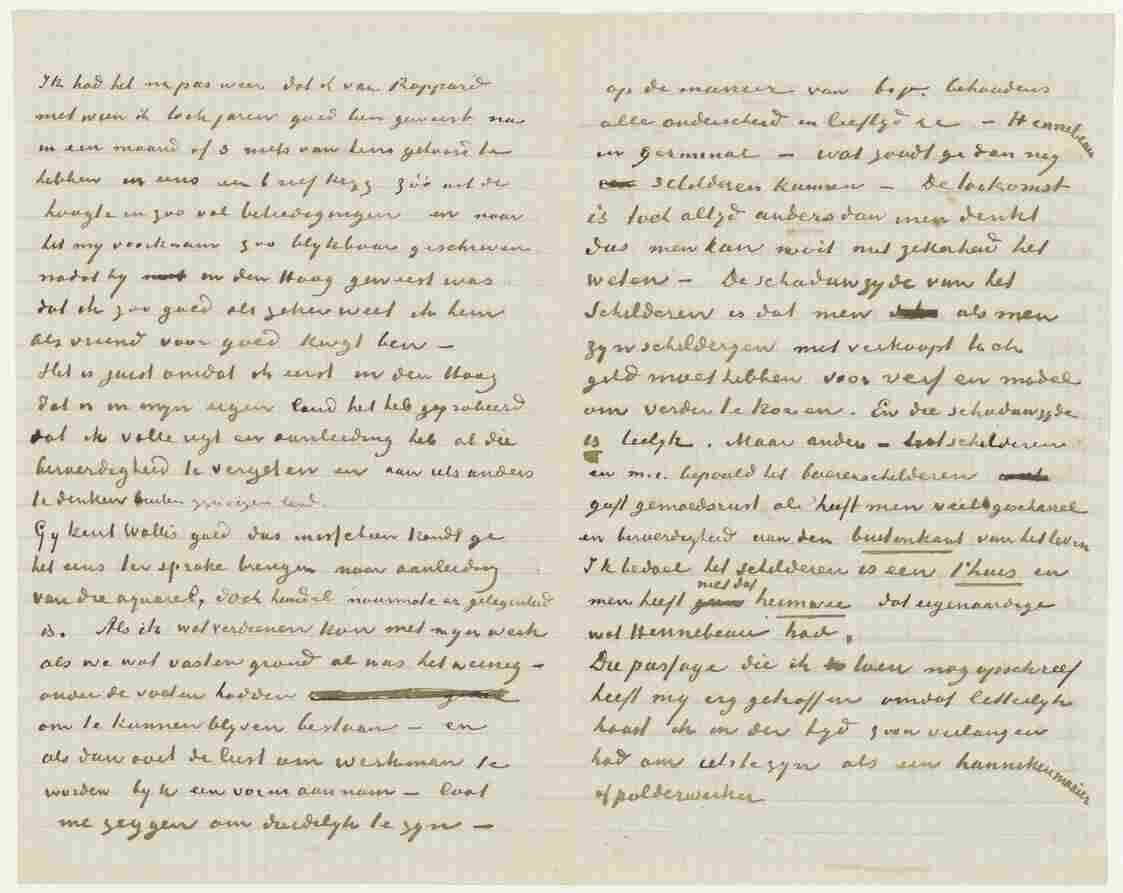 Ik had het nu pas weer dat ik van Rappard
met wien ik toch jaren goed ben geweest na
m een maand of 3 niets van hem gehoord te
hebben in eens een brief kreeg zóó uit de
hoogte en zoo vol beleedigingen en naar
het my voorkwam zoo blykbaar geschreven
nadat hy in den Haag geweest was
dat ik zoo goed als zeker weet ik hem
als vriend voor goed kwyt ben —
Het is juist omdat ik eerst in den Haag
dat is in myn eigen land het heb geprobeerd
dat ik volle regt en aanleiding heb al die
beroerdigheid te vergeten en aan iets anders
te denken buiten myn eigen land.
Gy kent Wallis goed dus misschien kondt ge
het eens ter sprake brengen naar aanleiding
van die aquarel, doch handel naarmate er gelegenheid
is. Als ik wat verdienen kon met myn werk
als we wat vasten grond al was het weinig —
onder de voeten hadden
om te kunnen blyven bestaan — en
als dan ooit de lust om werkman te
worden by U een vorm aannam — laat
me zeggen om duidelyk te zyn —
op de manier van b.v. behoudens
alle onderscheid in leeftyd &c — Hennebeau
in Germinal — wat zoudt ge dan nog
schilderen kunnen — De toekomst
is toch altyd anders dan men denkt
dus men kan nooit met zekerheid het
weten — De schaduwzyde van het
Schilderen is dat men als men
zyn schilderyen niet verkoopt toch
geld moet hebben voor verf en model
om verder te komen. En die schaduwzyde
is leelyk. Maar anders — het schilderen
en m.i. bepaald het boerenschilderen
geeft gemoedsrust al heeft men veel gescharrel
en beroerdigheid aan den buitenkant van het leven
Ik bedoel het schilderen is een t'huis en
men heeft niet dat heimwee dat eigenaardige
wat Hennebeau had.
Die passage die ik toen nog opschreef
heeft my erg getroffen omdat letterlyk
haast ik in den tyd zoon verlangen
had om iets te zyn als een hannekenmaaier
of polderwerker